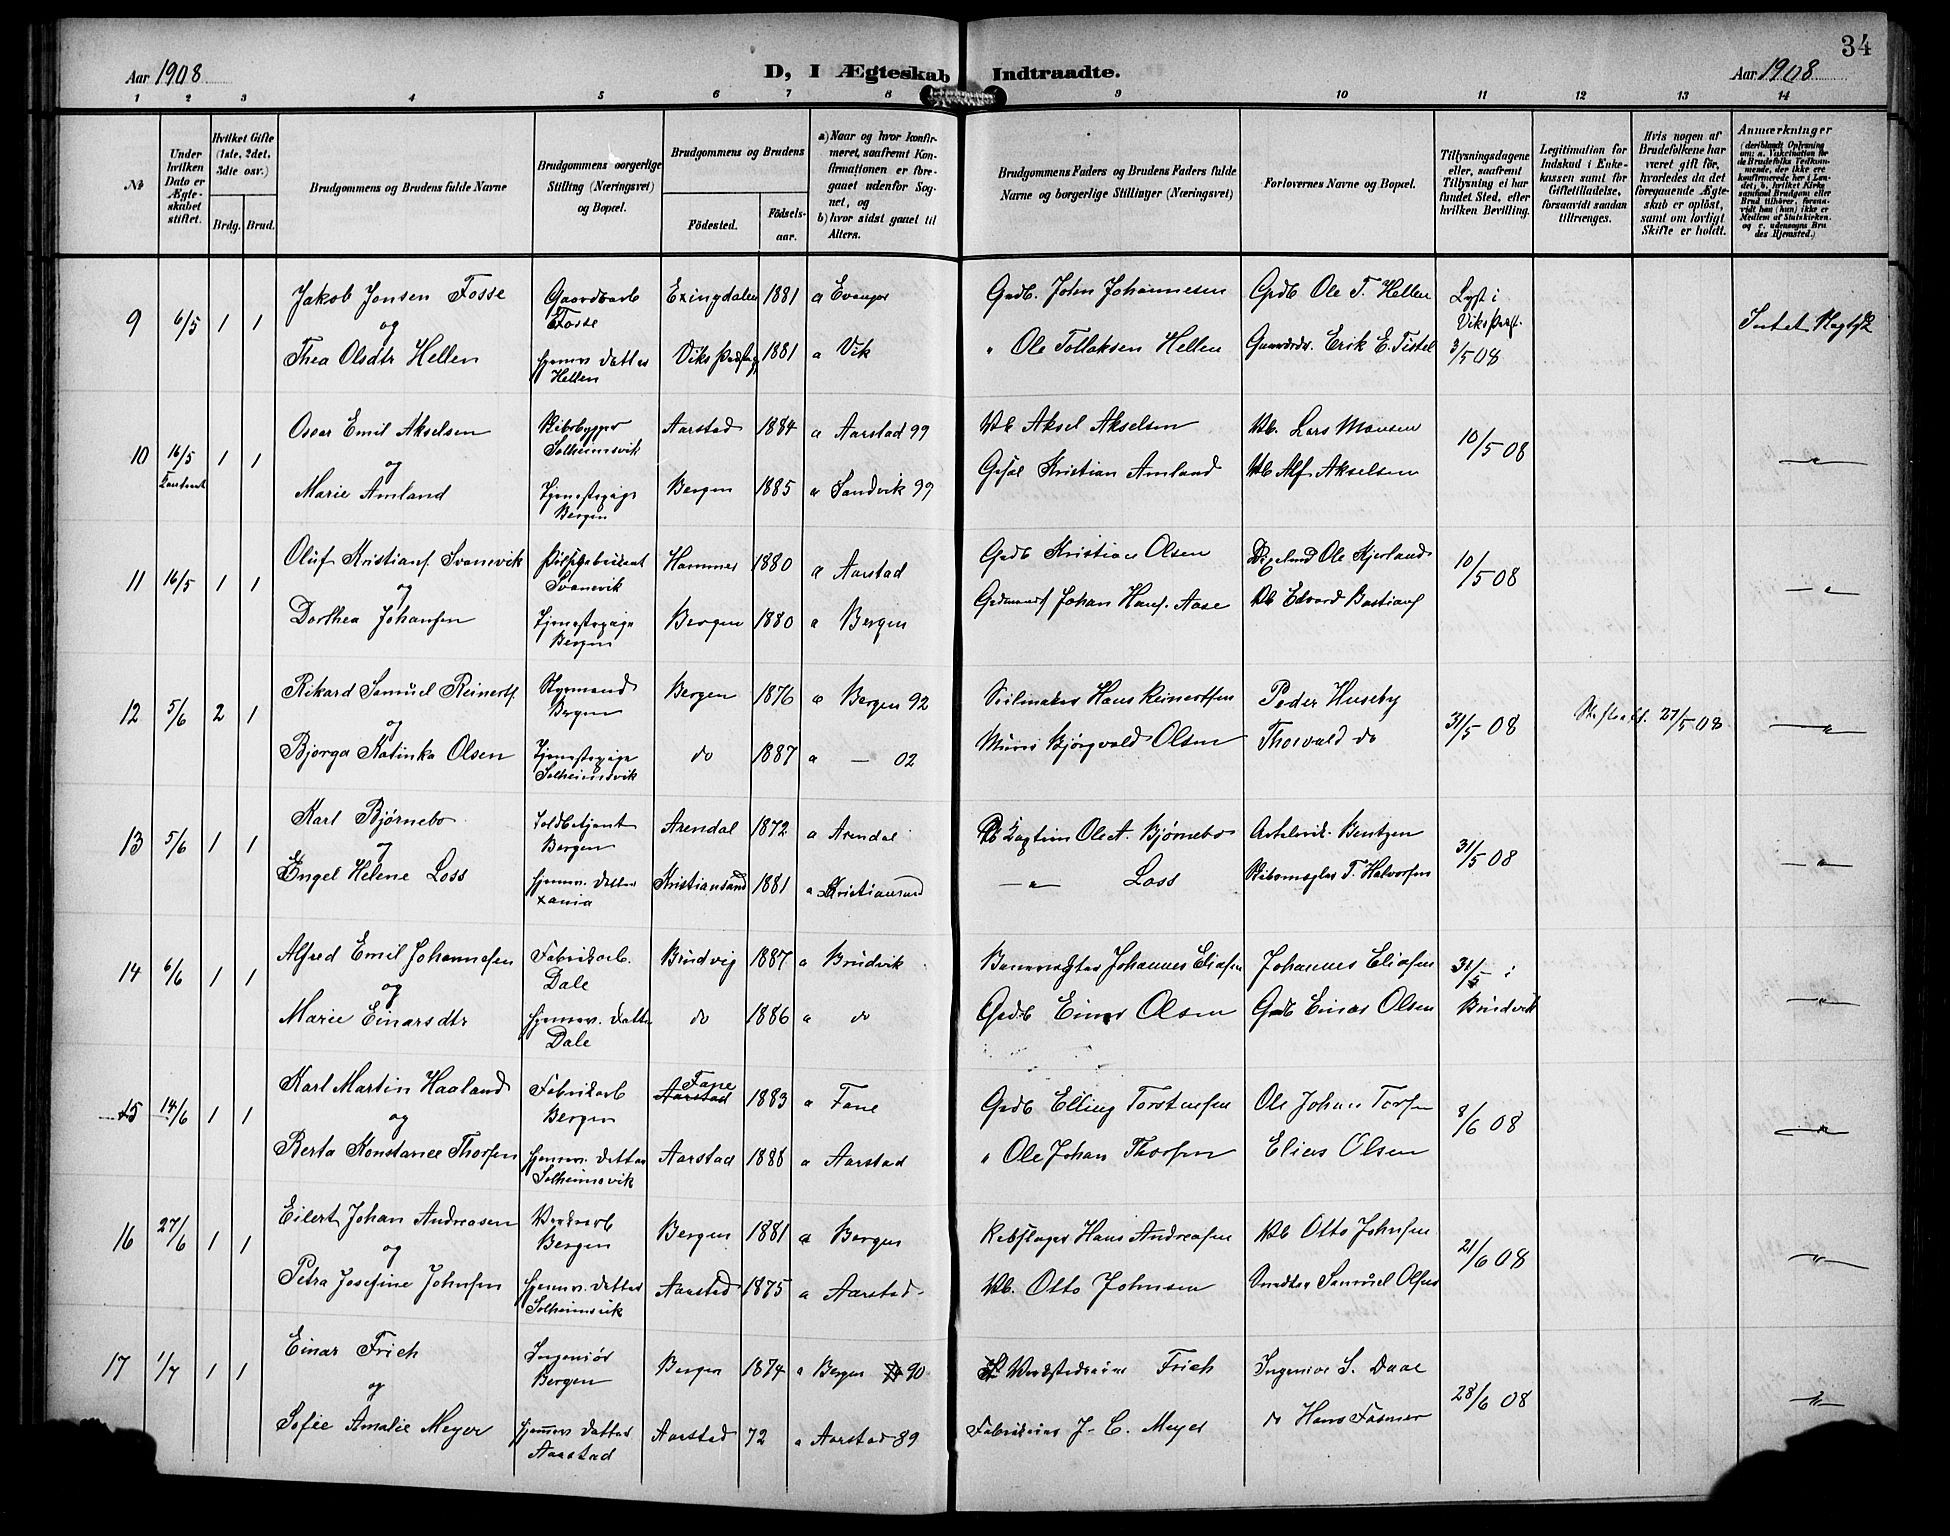 34
Aar 1908
D, I Ægteskab Indtraadte.
Aar 1908
1 2 3 4 5 6 7 8 9 10 11 12 13 14
№
Under hvilken Dato er Ægteskabet stiftet.
Hvilket Gifte (1ste, 2det, 3die osv.)
Brdg. Brud.
Brudgommens og Brudens fulde Navne
Brudgommens borgerlige Stilling (Næringsvei) og Bopæl.
Brudgommens og Brudens
Födested.
Födselsaar.
a) Naar og hvor konfirmeret, saafremt Konfirmationen er foregaaet udenfor Sognet, og
b) hvor sidst gaaet til Alters.
Brudgommens Faders og Brudens Faders fulde Navne og borgerlige Stillinger (Næringsvei)
Forlovernes Navne og Bopæl.
Tillysningsdagene eller, saafremt Tillysning ei har fundet Sted, efter hvilken Bevilling.
Legitimation for Indskud i Enkekassen samt for Giftetilladelse, forsaavidt saadan tiltrænges.
Hvis nogen af Brudefolkene har været gift för, hvorledes da det foregaaende Ægteskab er oplöst, samt om lovligt Skifte er holdt.
Anmærkninger
9 6/5 1 1 Jakob Jonsen Fosse Gaardbarb Exingdalen 1881 a Evanger Gadb. John Johannesen Gadb Ole T. Hellen Lyst i
og Fosse Viks Præst. Intet Slegtsk
Thea Olsdtr Hellen hjemmv. datter Viks Præstegj 1881 a Vik " Ole Tollaksen Hellen Gaardbr. Erik E. Tistel 3/5 08
Hellen
10 16/5 1 1 Oscar Emil Akselsen Skibsbygger Aarstad 1884 a Aarstad 99 Vb Aksel Akselsen Vb. Lars Monsen 10/5 08
og Solheimsvik
Marie Amland Tjenestepige Bergen 1885 a Sandvik 99 Kristian Amland Vb Alf Akselsen
Bergen
11 16/5 1 1 Oluf Kristians Svanevik Hammer 1880 a Aarstad Gadb Kristian Olsen Ole Kjerland 10/5 08
og Svanevik
Dorthea Johansen Tjenestepige Bergen 1880 a Bergen Johan Hans. Aase Vb Edvard Bastians
Bergen
12 5/6 2 1 Rikard Samuel Reinerts Styrmand Bergen 1876 a Bergen 92 Seilmaker Hans Reinertsen Peder Huseby 31/5 08 27/5 08
og Bergen
Bjorga Katinka Olsen Tjenestepige do 1887 a — 02 Murer Bjørgvald Olsen Thorvald do
Solheimsvik
13 5/6 1 1 Karl Bjørnebo Toldbetjent Arendal 1872 a Arendal Kaptein Ole A. Bjørnebo Bentzen 31/5 08
og Bergen
Engel Helene Loss hjemmv. datter Kristiansand 1881 a Kristiansand —"— Loss Skibsmægler T. Halvorsen
Xania
14 6/6 1 1 Alfred Emil Johannesen Fabrikarb. Brudvig 1887 a Brudvik Banevogter Johannes Eliasen Johannes Eliasen 31/5 i
og Dale
Marie Einarsdtr hjemmv. datter do 1886 a do Gadb Einar Olsen Gadb Einar Olsen Brudvik
Dale
15 14/6 1 1 Karl Martin Haaland Fabrikarb Fane Aarstad 1883 a Fane Gadb Elling Torstensen Ole Johan Torsen 8/6 08
og Bergen
Berta Konstance Thorsen hjemmv. datter Aarstad 1888 a Aarstad " Ole Johan Thorsen Elias Olsen
Solheimsvik
16 27/6 1 1 Eilert Johan Andreasen Verkarb Bergen 1881 a Bergen Rebslager Hans Andreasen Vb Otto Johnsen 21/6 08
og Bergen
Petra Josefine Johnsen hjemmv. datter Aarstad 1875 a Aarstad Vb. Otto Johnsen Samuel Olsen
Solheimsvik
17 1/7 1 1 Einar Frich Ingeniør Bergen 1874 a Bergen 90 Frich Ingeniør S. Daae 28/6 08
og Bergen
Sofie Amalie Meyer hjemmv. datter Aarstad 72 a Aarstad 89 J. C. Meyer do Hans Fasmer
Aarstad